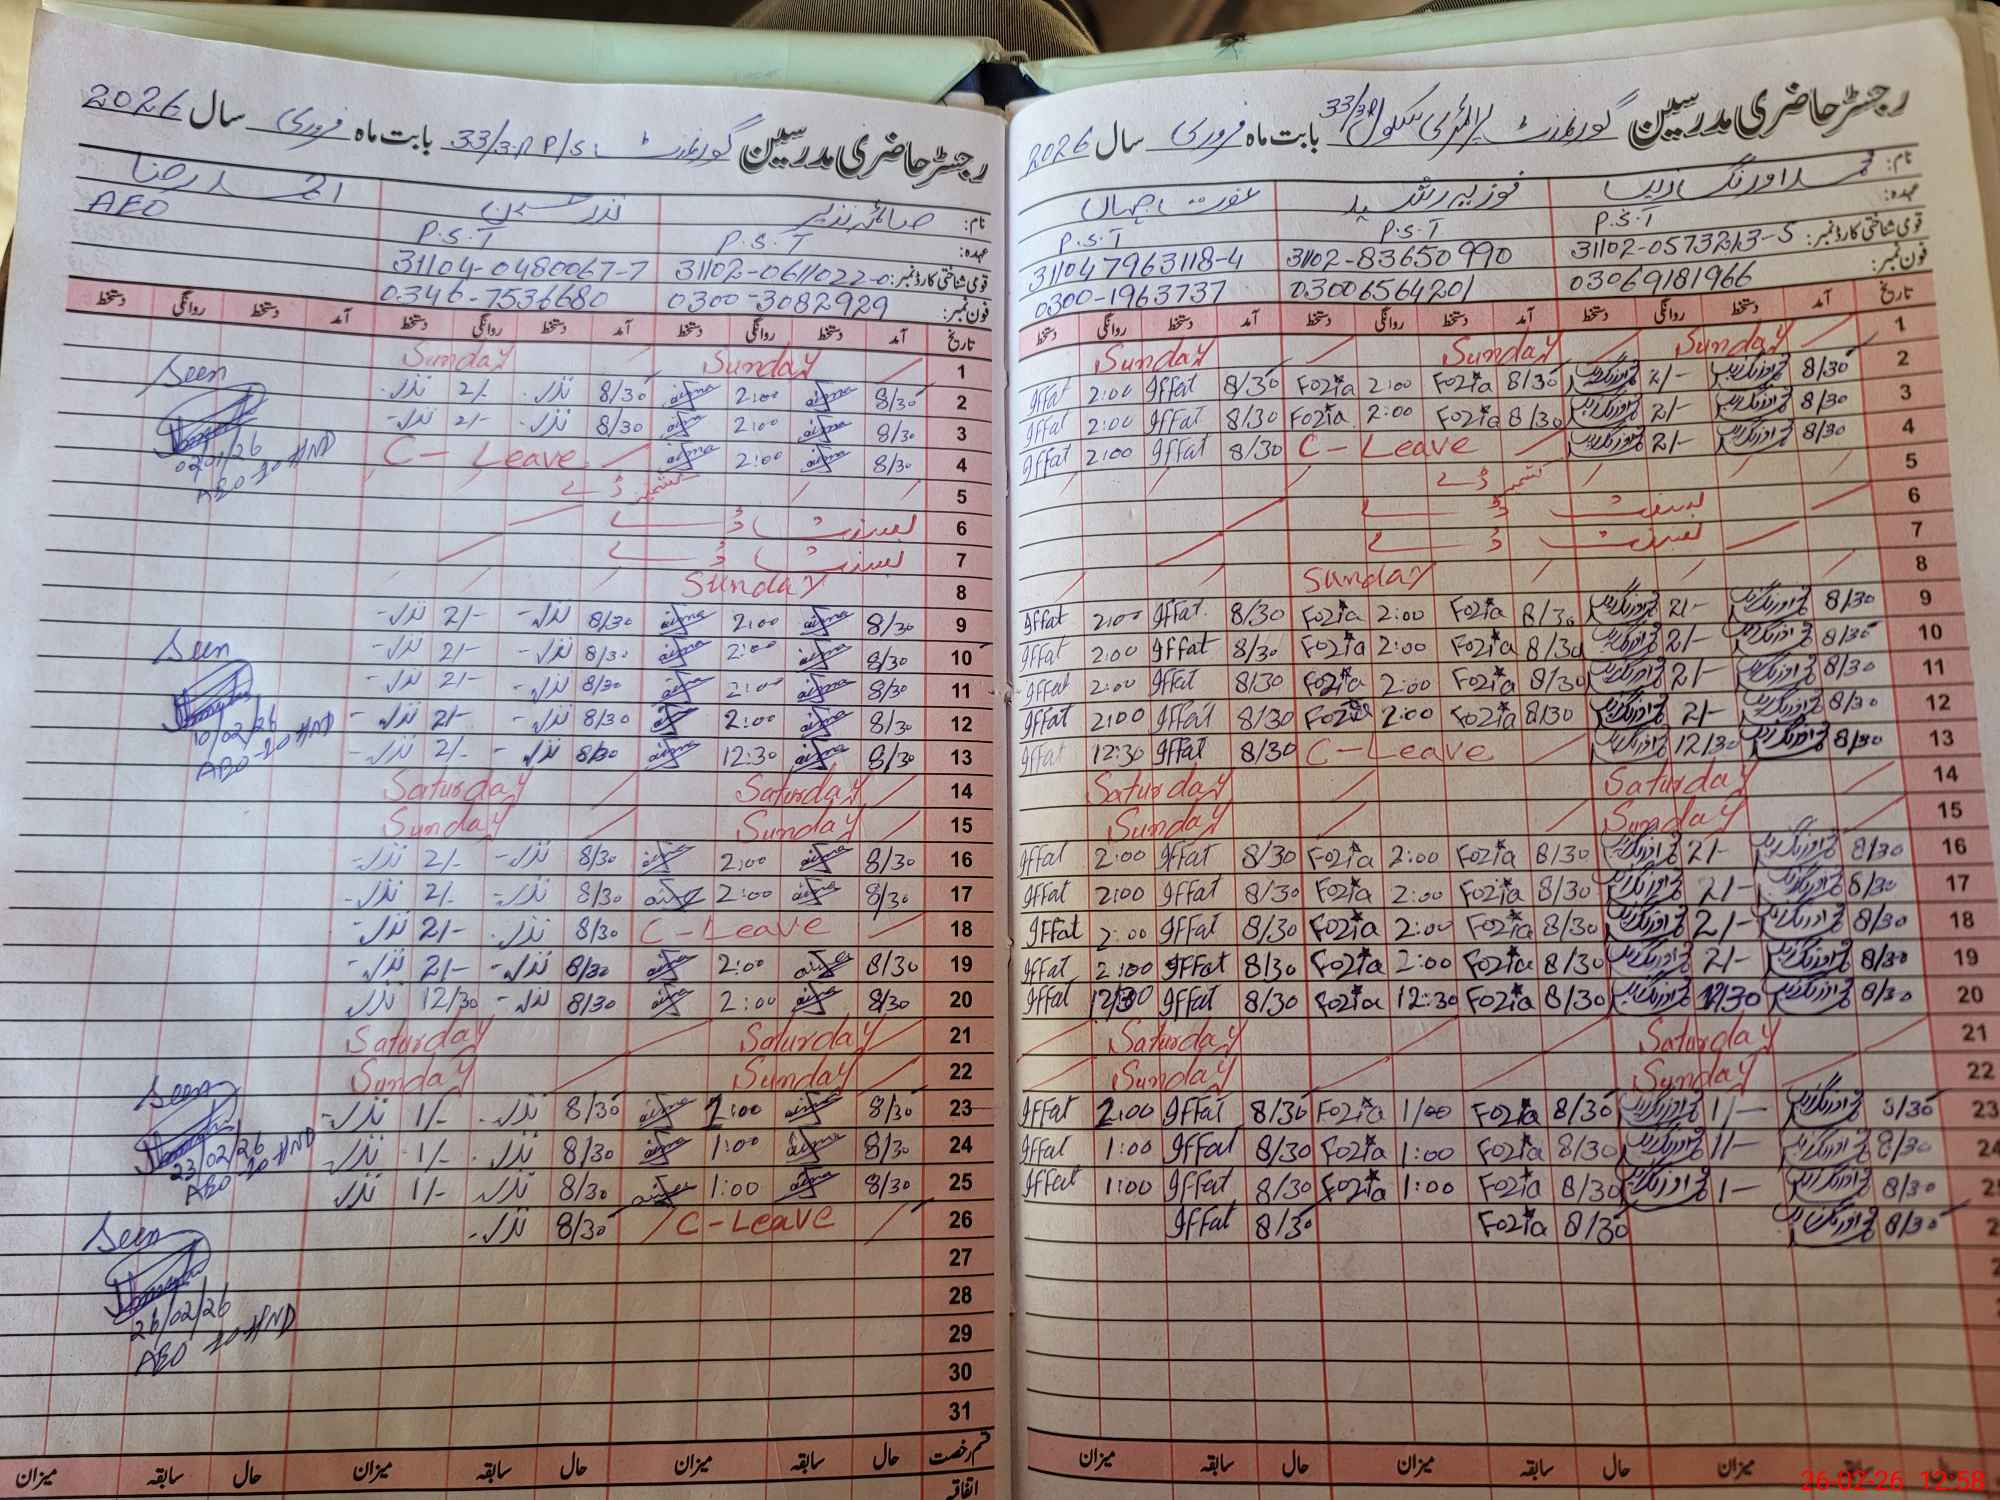 رجسٹر حاضری مدرسین گورنمنٹ پرائمری سکول 33/3R بابت ماہ فروری سال 2026
نام: محمد اورنگ زیب فوزیہ رشید عفت جہاں
عہدہ: P.S.T P.S.T P.S.T
قومی شناختی کارڈ نمبر: 31102-0573213-5 31102-83650990 311047963118-4
فون نمبر: 03069181966 03006564201 0300-1963737
تاریخ آمد دستخط روانگی دستخط آمد دستخط روانگی دستخط آمد دستخط روانگی دستخط
1 Sunday Sunday Sunday
2 8/30 2/- 8/30 Fozia 2:00 Fozia 8/30 Iffat 2:00 Iffat
3 8/30 2/- 8/30 Fozia 2:00 Fozia 8/30 Iffat 2:00 Iffat
4 8/30 2/- C-Leave 8/30 Iffat 2:00 Iffat
5 کشمیر ڈے
6 بسنت ڈے
7 بسنت ڈے
8 Sunday
9 8/30 2/- 8/30 Fozia 2:00 Fozia 8/30 Iffat 2:00 Iffat
10 8/30 2/- 8/30 Fozia 2:00 Fozia 8/30 Iffat 2:00 Iffat
11 8/30 2/- 8/30 Fozia 2:00 Fozia 8/30 Iffat 2:00 Iffat
12 8/30 2/- 8/30 Fozia 2:00 Fozia 8/30 Iffat 2:00 Iffat
13 8/30 12/30 C-Leave 8/30 Iffat 12:30 Iffat
14 Saturday Saturday
15 Sunday Sunday
16 8/30 2/- 8/30 Fozia 2:00 Fozia 8/30 Iffat 2:00 Iffat
17 8/30 2/- 8/30 Fozia 2:00 Fozia 8/30 Iffat 2:00 Iffat
18 8/30 2/- 8/30 Fozia 2:00 Fozia 8/30 Iffat 2:00 Iffat
19 8/30 2/- 8/30 Fozia 2:00 Fozia 8/30 Iffat 2:00 Iffat
20 8/30 12/30 8/30 Fozia 12:30 Fozia 8/30 Iffat 12/30 Iffat
21 Saturday Saturday
22 Sunday Sunday
23 8/30 1/- 8/30 Fozia 1/00 Fozia 8/30 Iffat 2:00 Iffat
24 8/30 1/- 8/30 Fozia 1:00 Fozia 8/30 Iffat 1:00 Iffat
8/30 1/- 8/30 Fozia 1:00 Fozia 8/30 Iffat 1:00 Iffat
8/30 8/30 Fozia 8/30 Iffat
حال سابقہ میزان حال سابقہ میزان حال سابقہ میزان
26-02-26 12:58
رجسٹر حاضری مدرسین گورنمنٹ P/S 33/3R بابت ماہ فروری سال 2026
نام: صائمہ نذیر نذر حسین احمد رضا
عہدہ: P.S.T P.S.T AEO
قومی شناختی کارڈ نمبر: 31102-0611022-0 31104-0480067-7
فون نمبر: 0300-3082929 0346-7536680
تاریخ آمد دستخط روانگی دستخط آمد دستخط روانگی دستخط آمد دستخط روانگی دستخط
1 Sunday Sunday
2 8/30 2:00 8/30 نذر 2/- نذر Seen
3 8/30 2:00 8/30 نذر 2/- نذر
4 8/30 2:00 C-Leave
5 کشمیر ڈے
6 بسنت ڈے
7 بسنت ڈے
8 Sunday
9 8/30 2:00 8/30 نذر 2/- نذر
10 8/30 2:00 8/30 نذر 2/- نذر Seen
11 8/30 2:00 8/30 نذر 2/- نذر
12 8/30 2:00 8/30 نذر 2/- نذر 10/02/26
13 8/30 12:30 8/30 نذر 2/- نذر
14 Saturday Saturday
15 Sunday Sunday
16 8/30 2:00 8/30 نذر 2/- نذر
17 8/30 2:00 8/30 نذر 2/- نذر
18 C-Leave 8/30 نذر 2/- نذر
19 8/30 2:00 8/30 نذر 2/- نذر
20 8/30 2:00 8/30 نذر 12/30 نذر
21 Saturday Saturday
22 Sunday Sunday
23 8/30 8/30 نذر 1/- نذر Seen
24 8/30 1:00 8/30 نذر 1/- نذر 23/02/26
25 8/30 1:00 8/30 نذر 1/- نذر
26 C-Leave 8/30 نذر Seen
27
28 26/02/26
29
30
31
قسم رخصت حال سابقہ میزان حال سابقہ میزان حال سابقہ میزان
اتفاقیہ